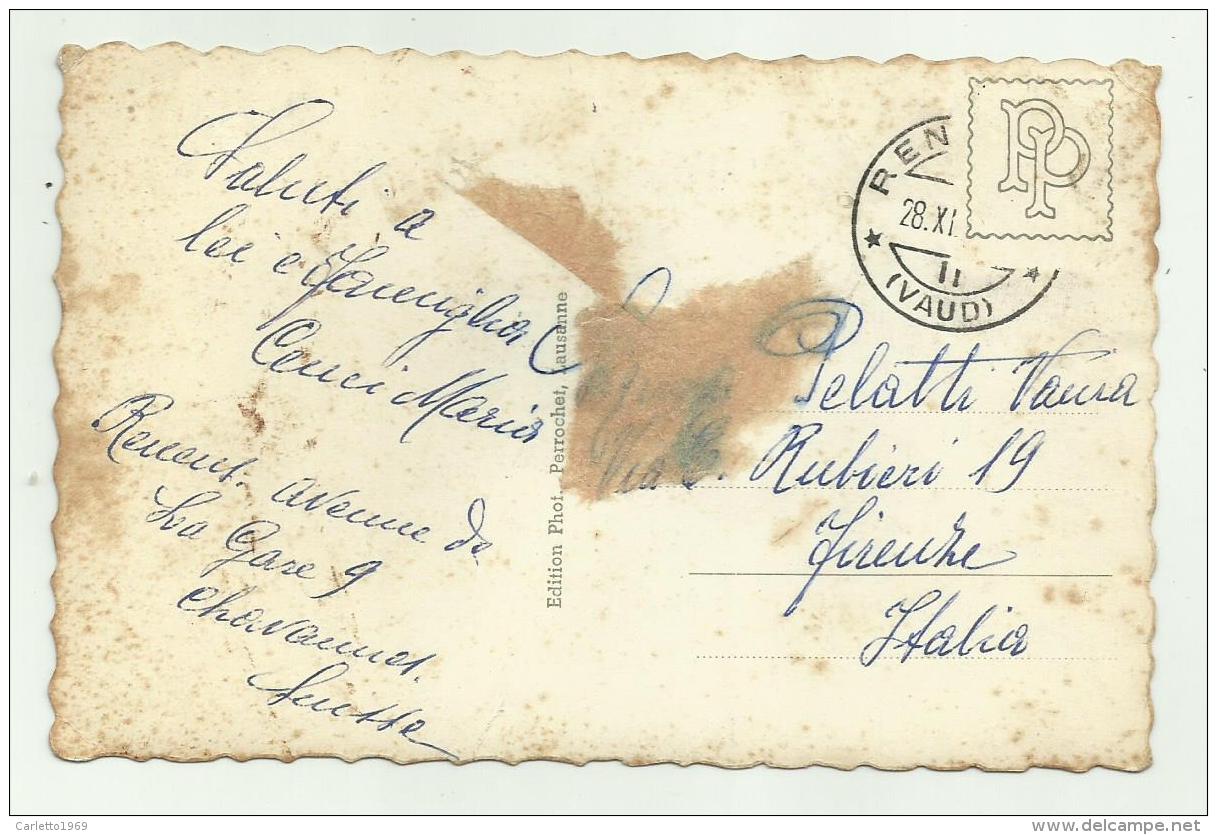 Saluti a
lei e famiglia
Cenci Maria
Renent. avenue de
La Gare 9
Chavannet.
Suitte
Edition Phot. Perrochet, Lausanne
Pelatti Vanna
Via E. Rubieri 19
Firenze
Italia
REN
28.XI.
11
(VAUD)
PP
Carletto1969
www.delcampe.net